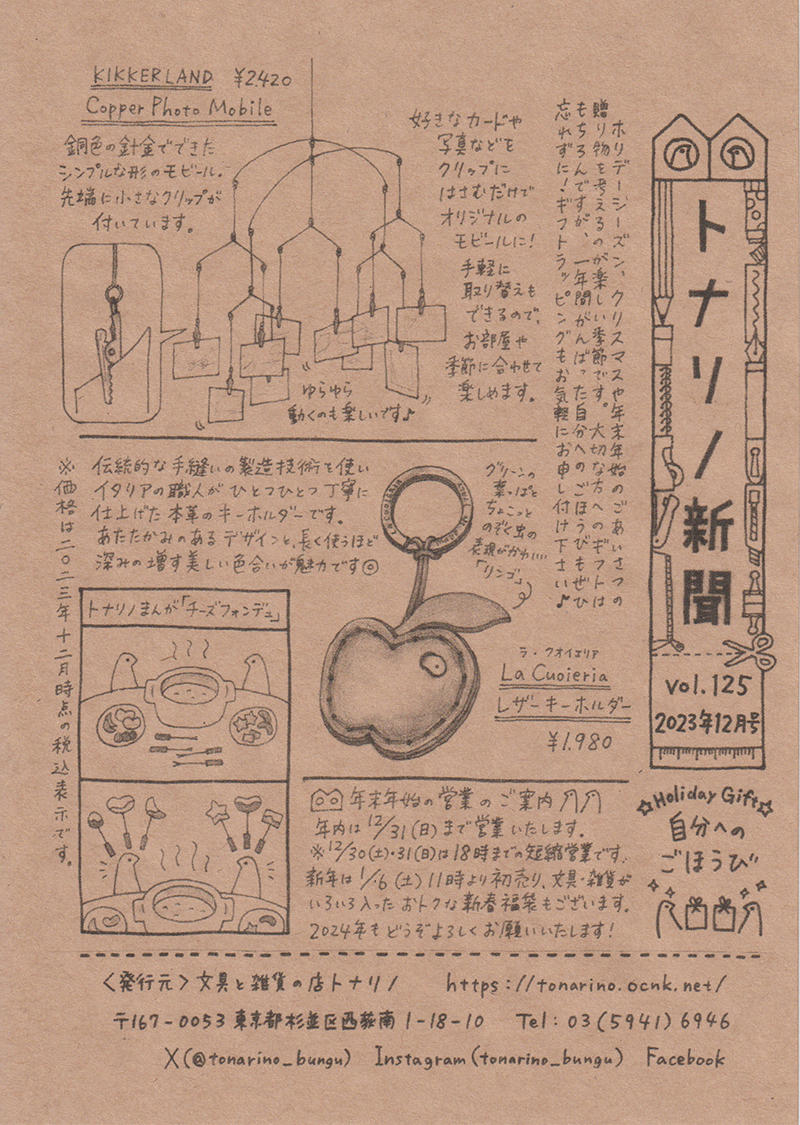 トナリノ新聞
vol.125
2023年12月号
☆Holiday Gift☆
自分への
ごほうび
ホリデーシーズン、クリスマスや年末年始のごあいさつの
贈り物を考えるのが楽しい季節です。大切な方へのギフトは
もちろんですが、一年間がんばった自分へのごほうびもぜひ
忘れずに!ギフトラッピングもお気軽にお申し付け下さい♪
KIKKERLAND ¥2,420
Copper Photo Mobile
銅色の針金でできた
シンプルな形のモビール。
先端に小さなクリップが
付いています。
好きなカードや
写真などを
クリップに
はさむだけで
オリジナルの
モビールに!
手軽に
取り替えも
できるので、
お部屋や
季節に合わせて
楽しめます。
ゆらゆら
動くのも楽しいです♪
伝統的な手縫いの製造技術を使い
イタリアの職人がひとつひとつ丁寧に
仕上げた本革のキーホルダーです。
あたたかみのあるデザインと、長く使うほど
深みの増す美しい色合いが魅力です◎
グリーンの
葉っぱと
ちょこっと
のぞく虫の
表現がかわいい
「リンゴ」
ラ・クオイエリア
La Cuoieria
レザーキーホルダー
¥1,980
※価格は二〇二三年十二月時点の税込表示です。
トナリノまんが「チーズフォンデュ」
年末年始の営業のご案内
年内は12/31(日)まで営業いたします。
※12/30(土)・31(日)は18時までの短縮営業です。
新年は1/6(土)11時より初売り、文具・雑貨が
いろいろ入ったおトクな新春福袋もございます。
2024年もどうぞよろしくお願いいたします!
〈発行元〉文具と雑貨の店トナリノ https://tonarino.ocnk.net/
〒167-0053 東京都杉並区西荻南1-18-10 Tel:03(5941)6946
X(@tonarino_bungu) Instagram(tonarino_bungu) Facebook